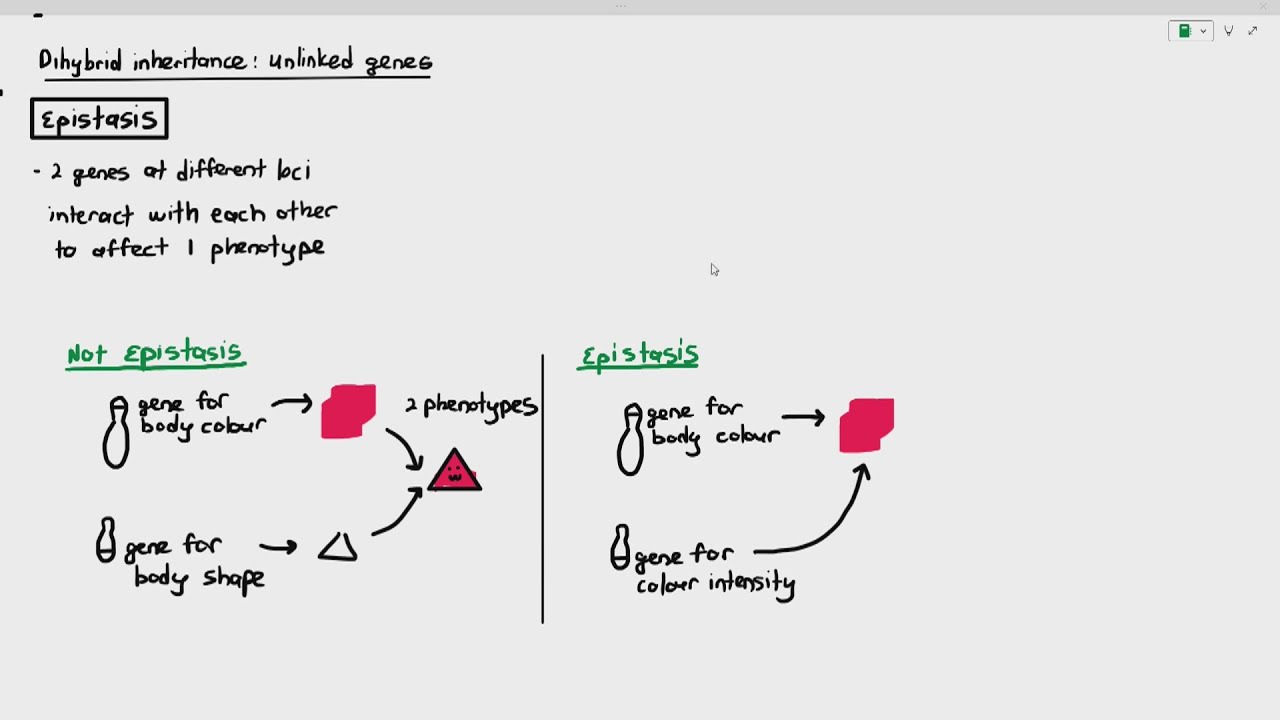 Dihybrid inheritance: unlinked genes
Epistasis
- 2 genes at different loci
interact with each other
to affect 1 phenotype
Not Epistasis
gene for
body colour
2 phenotypes
gene for
body shape
Epistasis
gene for
body colour
gene for
colour intensity